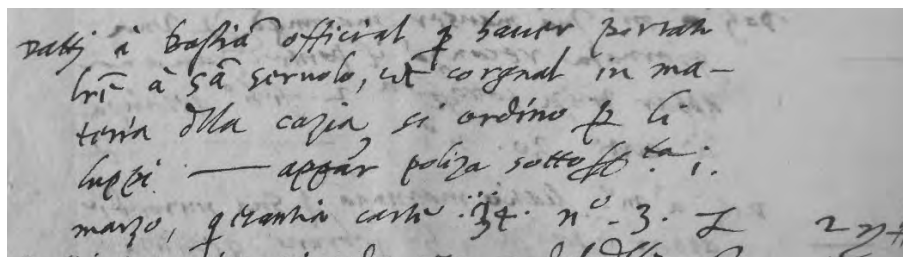 Datti à bastiã official ꝑ hauer portatti
lrẽ à Sã Seruolo, et corgnal in ma-
teria dlla cazia, si ordino ꝑ li
luppi — appar poliza sotto 
marzo, qetantia carte 34. n.º 3. L 2